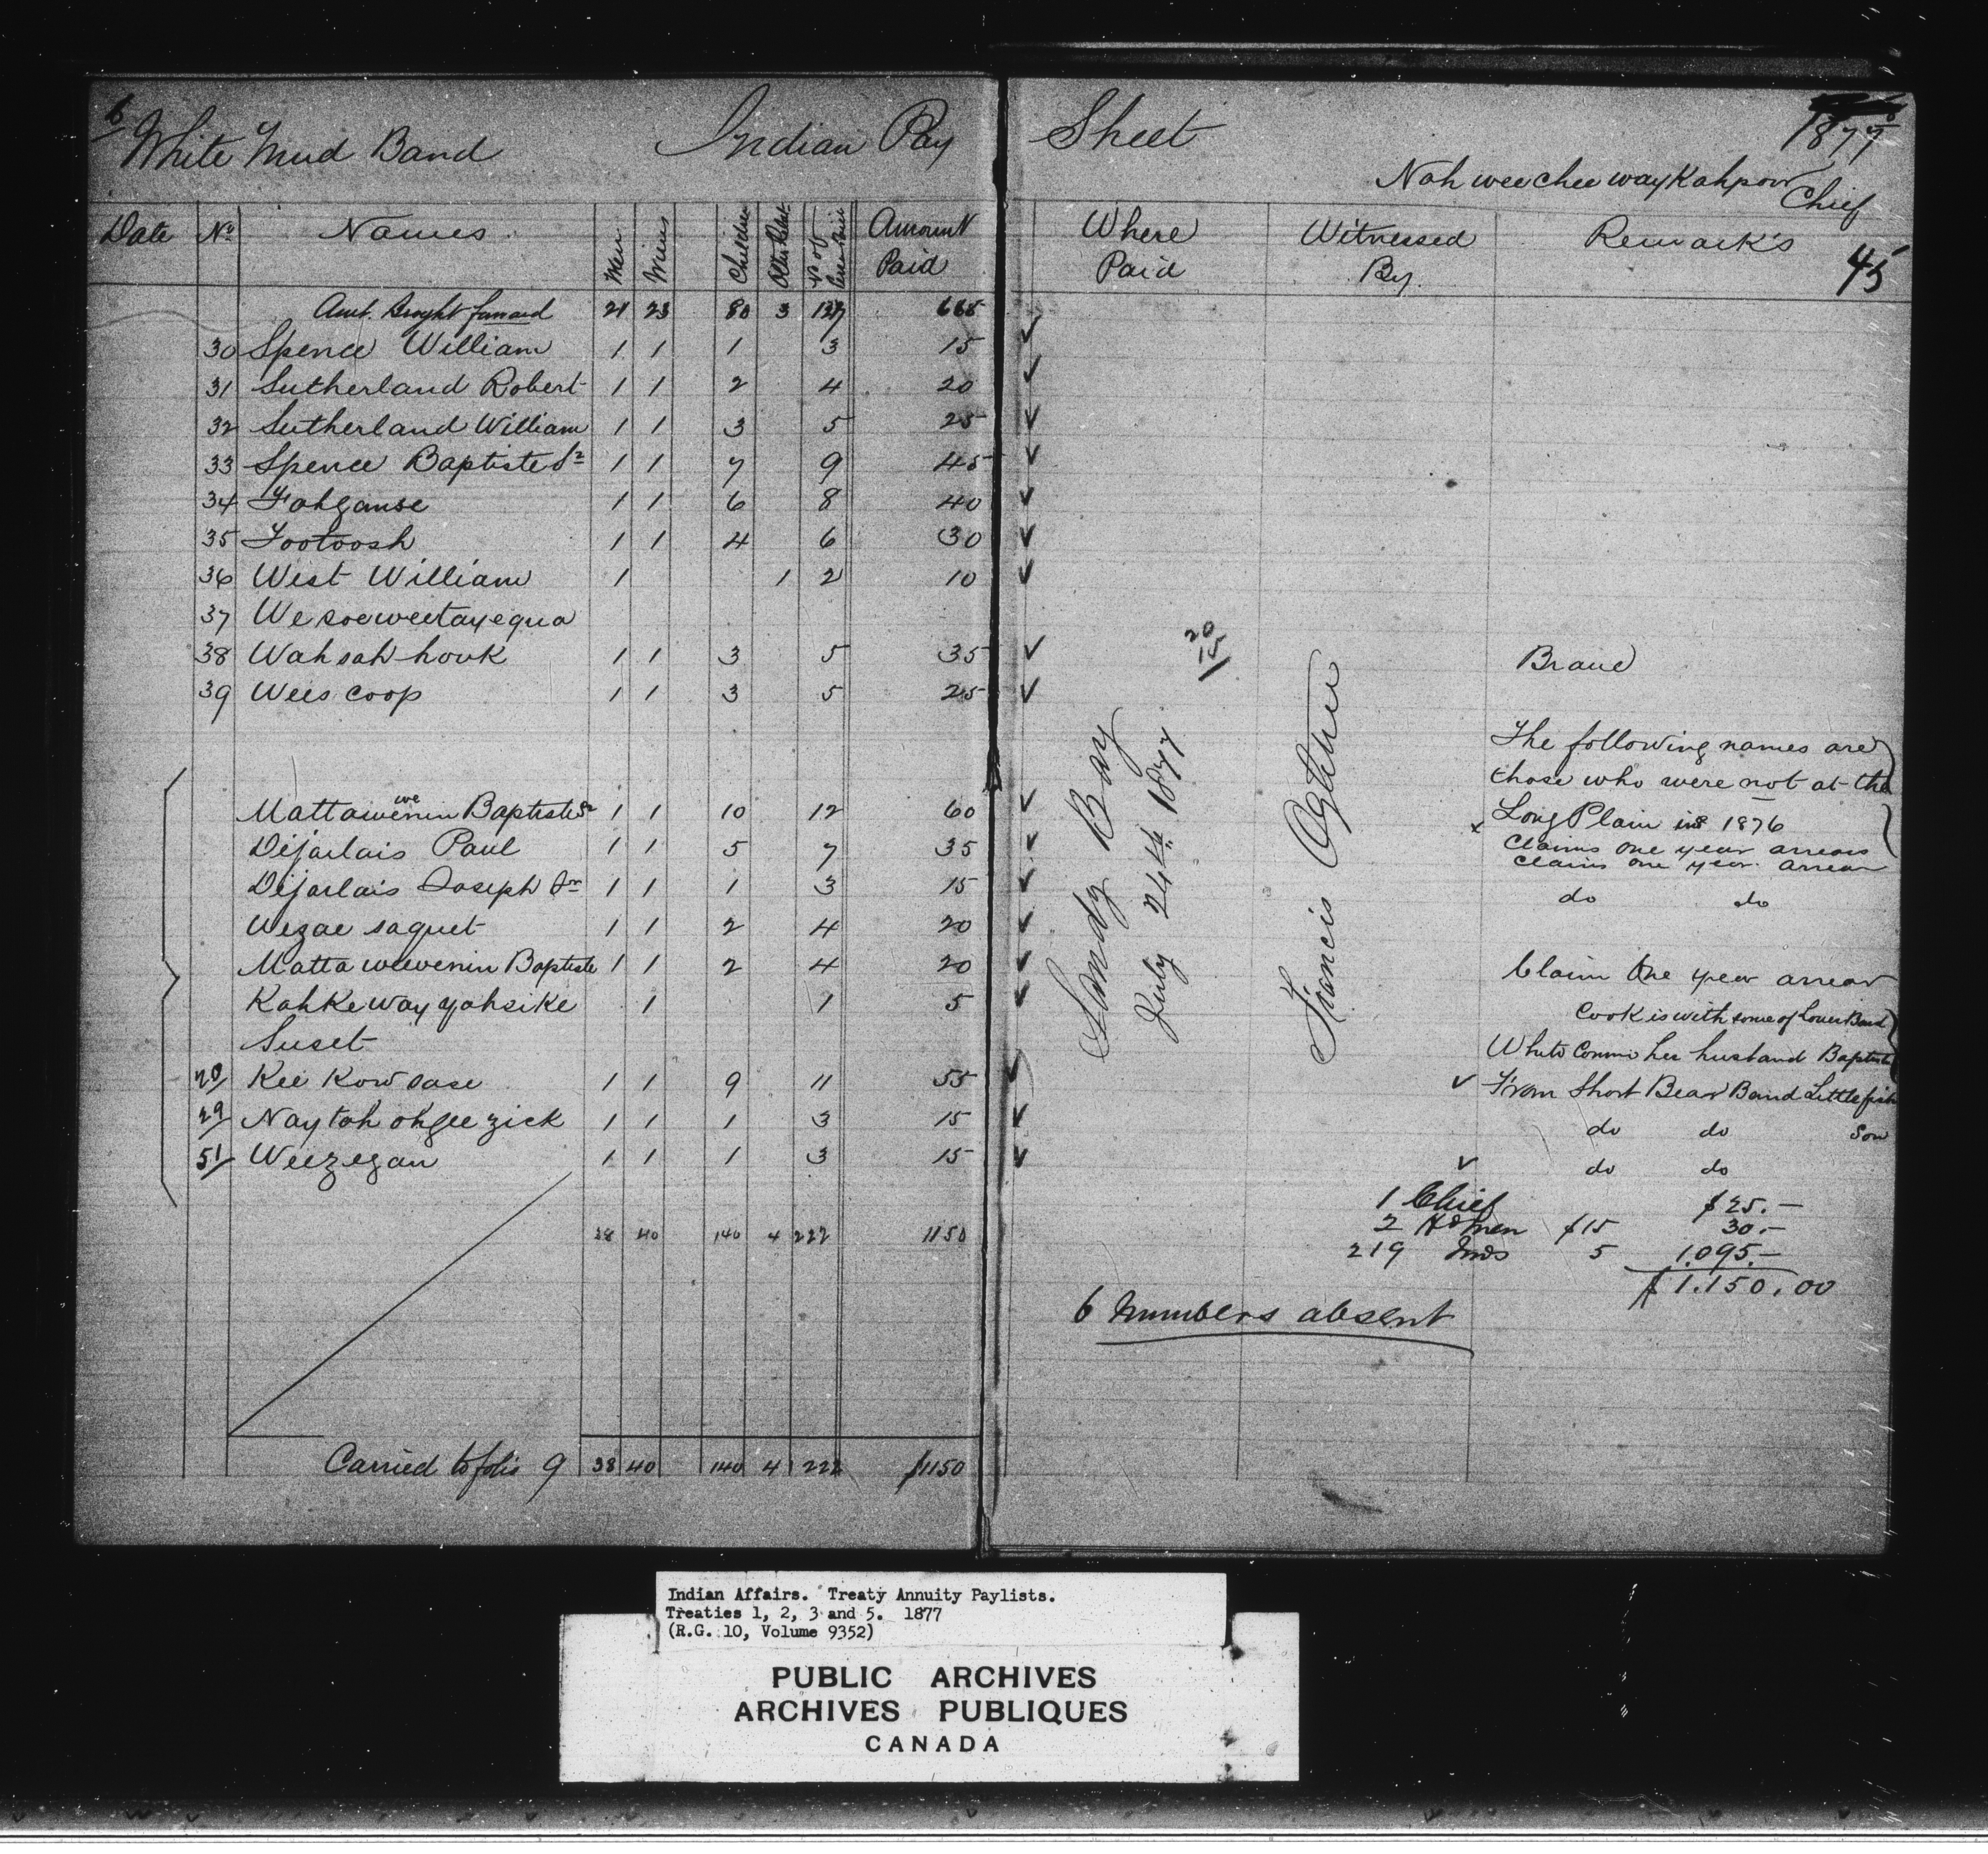 6
White Mud Band Indian Pay Sheet 1877
Nah wee chee way Kahpow
Chief
Date No Names Men Children No of Amount Paid Where Paid Witnessed By. Remark's 45
Amt. Brought forward 21 23 80 3 127 665
30 Spence William 1 1 1 3 15 ✓
31 Sutherland Robert 1 1 2 4 20 ✓
32 Sutherland William 1 1 3 5 25 ✓
33 Spence Baptiste Sr 1 1 7 9 45 ✓
34 1 1 6 8 40 ✓
35 Tootoosh 1 1 4 6 30 ✓
36 West William 1 1 2 10 ✓
37 We soeweetayequa
38 Wahsah houk 1 1 3 5 35 ✓ 20 15 Brave
39 Wees coop 1 1 3 5 25 ✓
The following names are
those who were not at the
Mattawewenin Baptiste Sr 1 1 10 12 60 ✓ x Long Plain in 1876
Claims one year arrears
Dejarlais Paul 1 1 5 7 35 ✓ Claims one year arrear
Dejarlais Joseph Jr 1 1 1 3 15 ✓ do do
Wezae saquet 1 1 2 4 20 ✓
Matta weewenin Baptiste 1 1 2 4 20 ✓ Claim One year arrear
Kahkeway yahsike 1 1 5 ✓ Cook is with some of Lower Band
Suset White her husband Baptiste
Kee Kow sase 1 1 9 11 55 ✓ ✓ From Short Bear Band Littlefish
29/ Naytah ohgee zick 1 1 1 3 15 ✓ do do Son
51/ Weezegan 1 1 1 3 15 ✓ ✓ do do
Sandy Bay
July 24th 1877
Francis Ogletree
1 Chief $25.-
38 40 140 4 222 1150 2 Hdmen $15 30.-
219 Inds 5 1.095.-
$1.150.00
6 Numbers absent
Carried to folio 9 38 40 140 4 222 $1150
Indian Affairs. Treaty Annuity Paylists.
Treaties 1, 2, 3 and 5. 1877
(R.G. 10, Volume 9352)
PUBLIC ARCHIVES
ARCHIVES PUBLIQUES
CANADA